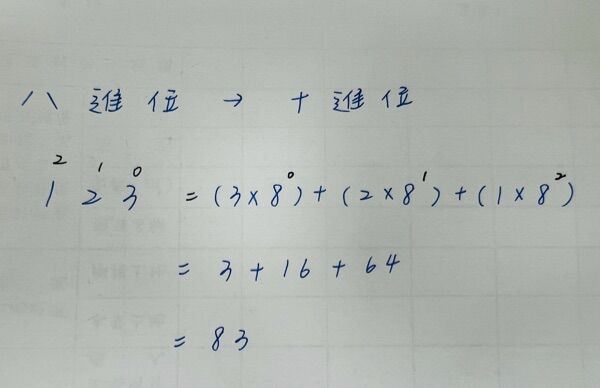 八 進位 → 十進位
1² 2¹ 3⁰ = (3×8⁰)+(2×8¹)+(1×8²)
= 3+16+64
= 83